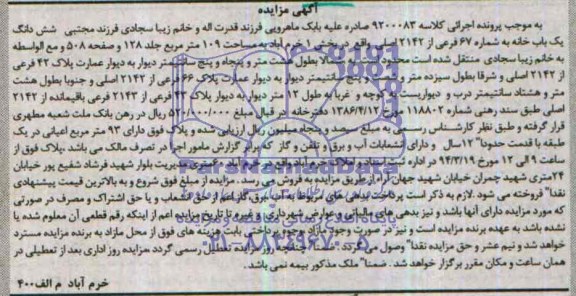 آگهی مزایده
به موجب پرونده اجرائی کلاسه ۹۲۰۰۰۸۳ صادره علیه بابک ماهرویی فرزند قدرت اله و خانم زیبا سجادی فرزند مجتبی شش دانگ
یک باب خانه به شماره ۶۷ فرعی از ۲۱۴۲ اصلی واقع در خرم آباد به مساحت ۱۰۹ متر مربع جلد ۱۲۸ و صفحه ۵۰۸ و مع الواسطه
به خانم زیبا سجادی منتقل شده است محدود شمالا بطول هشت متر و پنجاه و پنج سانتیمتر دیوار به دیوار عمارت پلاک ۴۲ فرعی
از ۲۱۴۲ اصلی و شرقا بطول سیزده متر و پنج سانتیمتر دیوار به دیوار عمارت پلاک ۶۶ فرعی از ۲۱۴۲ اصلی و جنوبا بطول هشت
متر و هشتاد سانتیمتر درب و دیواریست به کوچه و غربا به طول ۱۳ متر دیوار به دیوار پلاک ۴۳ فرعی از ۲۱۴۳ فرعی باقیمانده از ۲۱۴۲
اصلی طبق سند رهنی شماره ۱۱۸۸۰۲ - ۱۳۸۶/۴/۱۲ دفترخانه خرم آباد در قبال مبلغ ریال در رهن بانک ملت شعبه مطهری
قرار گرفته و طبق نظر کارشناس رسمی به مبلغ سیصد و پنجاه میلیون ریال ارزیابی شده و پلاک فوق دارای ۹۳ متر مربع اعیانی در یک
طبقه با قدمت حدودا ۱۲ سال و دارای انشعابات آب و برق و تلفن و گاز که برابر گزارش مامور اجرا در تصرف مالک می باشد. پلاک فوق از
ساعت ۹ الی ۱۲ مورخ ۹۴/۳/۱۹ در اداره ثبت اسناد و املاک خرم آباد واقع در خرم آباد ۶۰ متری معین بلوار شهید فرشاد شفیع پور خیابان
۲۴ متری شهید چمران خیابان شهید جهان آرا از طریق مزایده به فروش می رسد. مزایده از مبلغ فوق شروع و به بالاترین قیمت پیشنهادی
نقدا فروخته می شود. لازم به ذکر است پرداخت بدهی های مربوط به آب، برق، گاز اعم از حق انشعاب و یا حق اشتراک و مصرف در صورتی
که مورد مزایده دارای آنها باشد و نیز بدهی های مالیاتی و عوارض شهرداری و غیره تا تاریخ مزایده اعم از اینکه رقم قطعی آن معلوم شده یا
نشده باشد به عهده برنده مزایده است و نیز در صورت وجود مازاد وجوه پرداختی بابت هزینه های فوق از محل مازاد به برنده مزایده مسترد
خواهد شد و نیم عشر و حق مزایده نقدا وصول می گردد. ضمنا چنانچه روز مزایده تعطیل رسمی گردد مزایده روز اداری بعد از تعطیلی در
همان ساعت و مکان مقرر برگزار خواهد شد. ضمنا ملک مذکور بیمه نمی باشد.
خرم آباد م الف ۴۰۰
ParsNamadData
۰۲۱-۸۸۳۴۹۶۷۰-۵